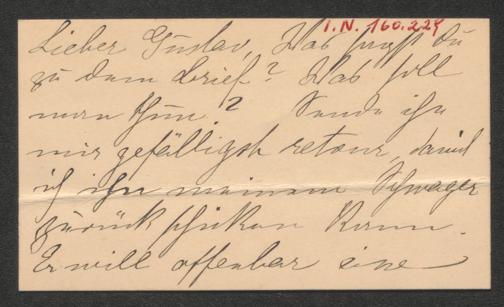 I.N. 160.224
Lieber Gustav, Was sagst Du
zu dem Brief? Was soll
man thun? Sende ihn
mir gefälligst retour, damit
ich ihn meinem Schwager
zurück schicken kann.
Er will offenbar eine